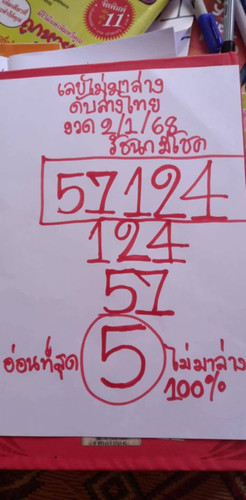 เลขไม่มาล่าง
ดับล่างไทย
งวด 2/1/68
รัชนก มีโชค
57124
124
57
อ่อนที่สุด 5 ไม่มาล่าง
100%
11